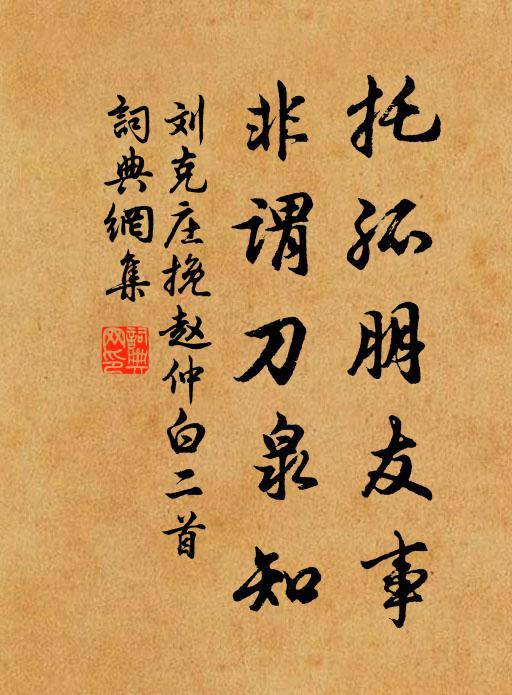 托孤朋友事
非谓刀泉知
刘克庄挽赵仲白二首
詞典網集
詞典网印